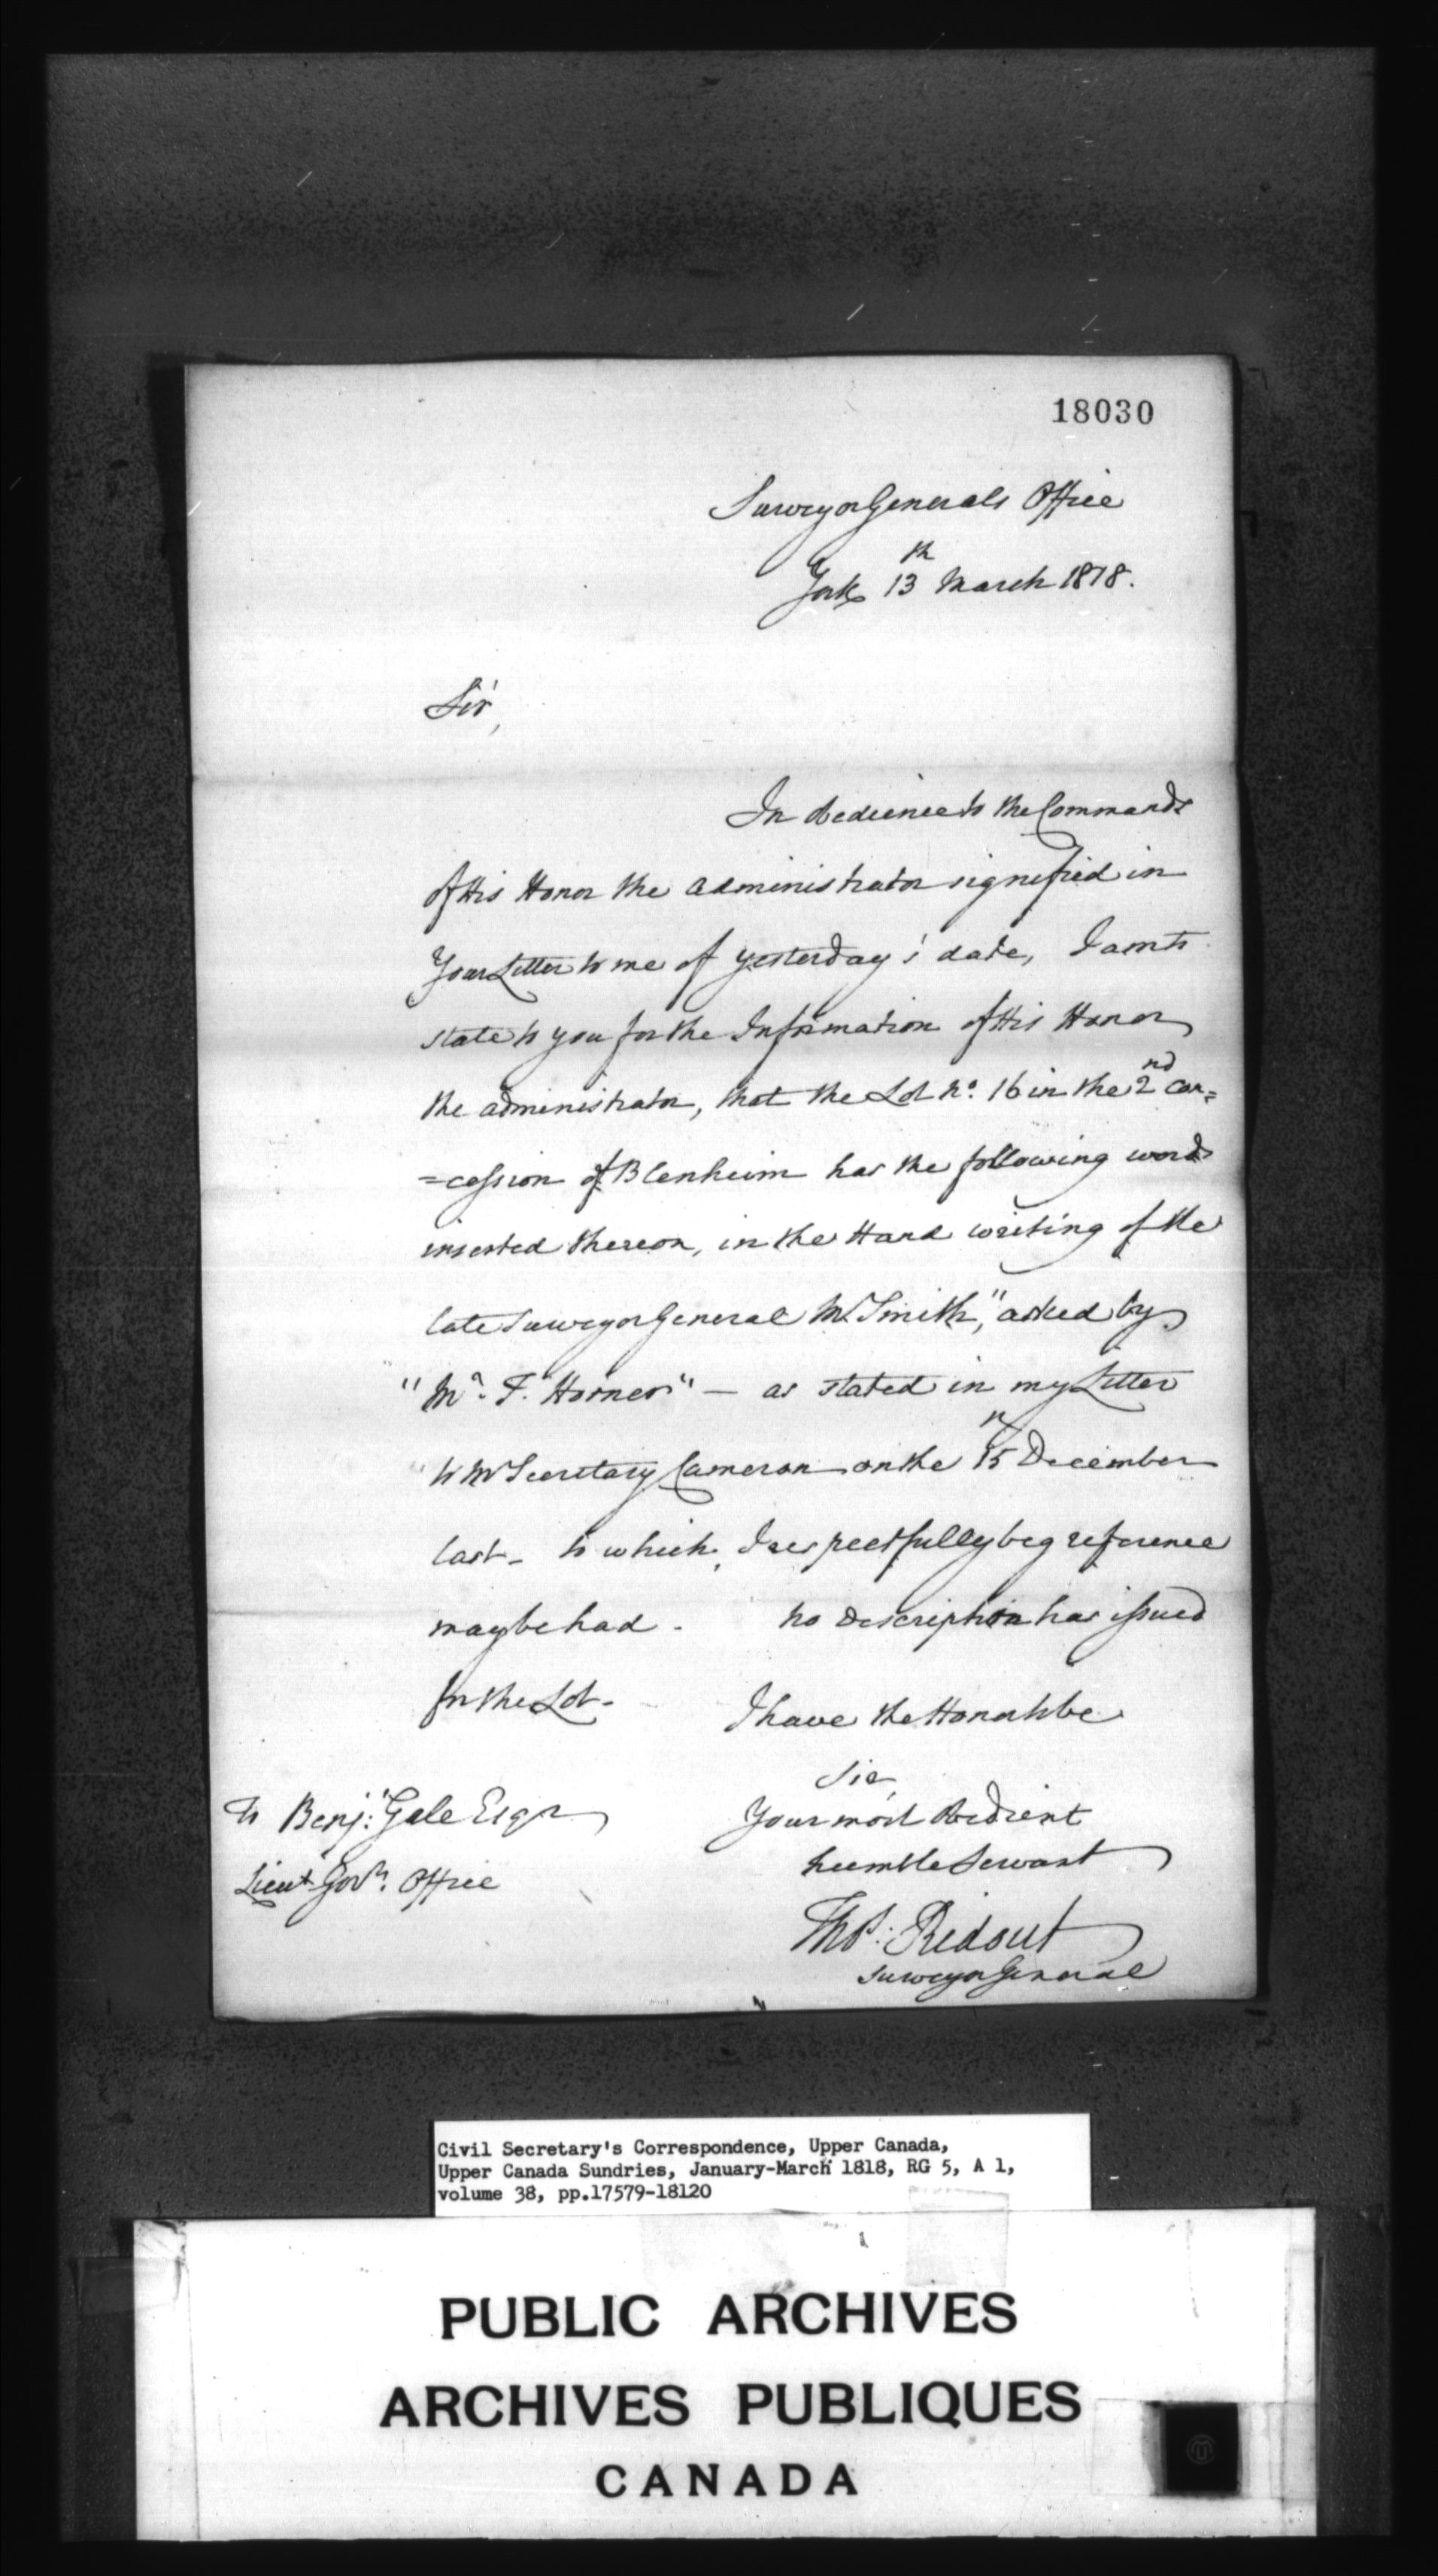 18030
Surveyor Generals Office
York 13th March 1818.
Sir,
In obedience to the Commands
of His Honor the Administrator signified in
Your Letter to me of yesterday's date, I am to
state to you for the Information of His Honor
the Administrator, that the Lot No. 16 in the 2nd con=
=cession of Blenheim has the following words
inserted thereon, in the Hand writing of the
late Surveyor General Mr Smith, "asked by
"Mr. T. Horner" — as stated in my Letter
to Mr Secretary Cameron on the 15th December
last - to which, I respectfully beg reference
may be had - No Description has issued
for the Lot -
I have the Honor to be
Sir,
Your most Obedient
humble Servant
Thos. Ridout
Surveyor General
To Benjn. Gale Esqr
Lieut Govrs. Office
Civil Secretary's Correspondence, Upper Canada,
Upper Canada Sundries, January-March 1818, RG 5, A 1,
volume 38, pp.17579-18120
PUBLIC ARCHIVES
ARCHIVES PUBLIQUES
CANADA